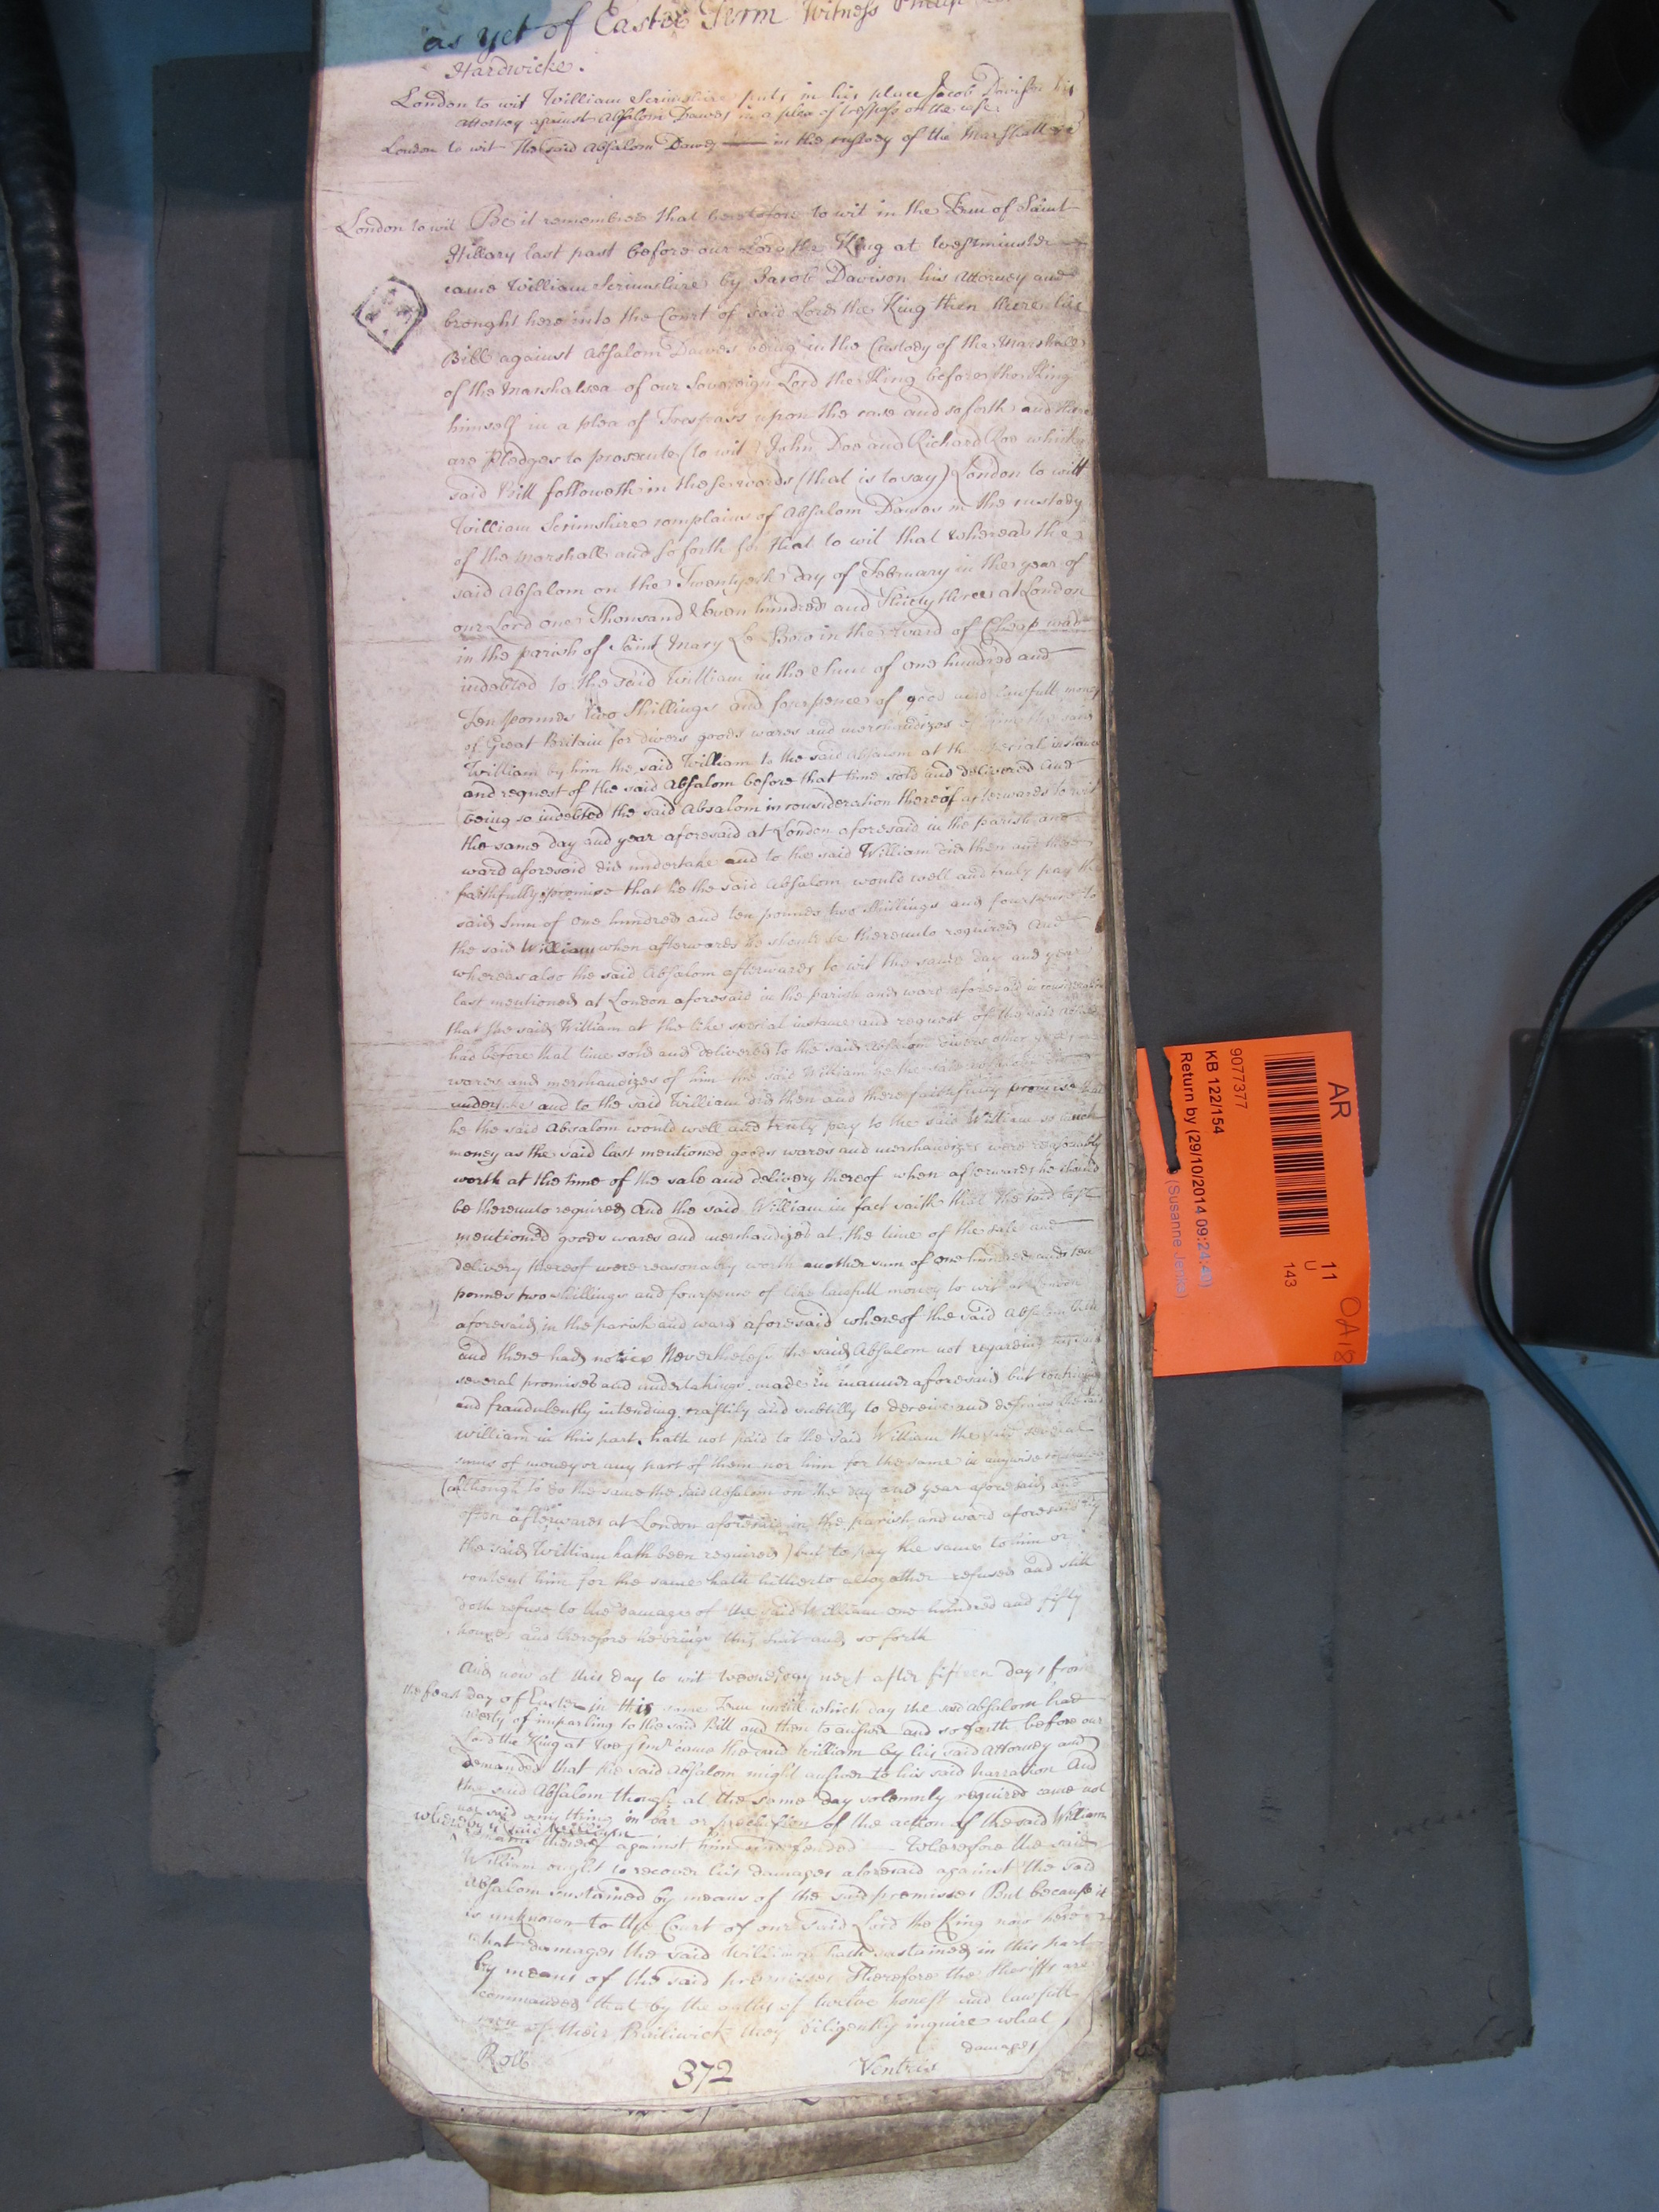 as yet of Easter Term Witness Philip
Hardwicke.
London to wit William Scrimshire puts in his place Jacob Davison his
attorney against Absalom Dawes in a plea of trespass on the case
London to wit The said Absalom Dawes in the custody of the Marshall &c
London to wit Be it remembred that heretofore to wit in the Term of Saint
Hillary last past before our Lord the King at Westminster
came William Scrimshire by Jacob Davison his Attorney and
brought here into the Court of said Lord the King then there his
Bill against Absalom Dawes being in the Custody of the Marshall
of the Marshalsea of our Sovereign Lord the King before the King
himself in a plea of Trespass upon the case and so forth and there
are Pledges to prosecute (to wit) John Doe and Richard Roe which
said Bill followeth in these words (that is to say) London to witt
William Scrimshire complains of Absalom Dawes in the custody
of the Marshall and so forth for that to wit that whereas the
said Absalom on the Twentyeth day of February in the year of
our Lord one Thousand Seven hundred and Thirty three at London
in the parish of Saint Mary Le Bow in the Ward of Cheap was
indebted to the said William in the Sum of one hundred and
Ten pounds two Shillings and fourpence of good and lawfull money
of Great Britain for divers goods wares and merchandizes of him the said
William by him the said William to the said Absalom at the special instance
and request of the said Absalom before that time sold and delivered And
being so indebted the said Absalom in consideration thereof afterwards to wit
the same day and year aforesaid at London aforesaid in the parish and
ward aforesaid did undertake and to the said William did then and there
faithfully promise that he the said Absalom would well and truly pay the
said Sum of one hundred and ten pounds two Shillings and fourpence to
the said William when afterwards he should be thereunto required And
whereas also the said Absalom afterwards to wit the same day and year
last mentioned at London aforesaid in the parish and ward aforesaid in consideration
that the said William at the like special instance and request of the said Absalom
had before that time sold and delivered to the said Absalom divers other goods
wares and merchandizes of him the said William he the said Absalom
undertake and to the said William did then and there faithfully promise that
he the said Absalom would well and truly pay to the said William so much
money as the said last mentioned goods wares and merchandizes were reasonably
worth at the time of the sale and delivery thereof when afterwards he should
be thereunto required And the said William in fact saith that the said last
mentioned goods wares and merchandizes at the time of the sale and
delivery thereof were reasonably worth another sum of one hundred and ten
pounds two shillings and fourpence of like lawfull money to wit at London
aforesaid in the parish and ward aforesaid whereof the said Absalom then
and there had notice Nevertheless the said Absalom not regarding his said
several promises and undertakings made in manner aforesaid but contriving
and fraudulently intending craftily and subtilly to deceive and defraud the said
William in this part hath not paid to the said William the said several
sums of money or any part of them nor him for the same in anywise contented
(although to do the same the said Absalom on the day and year aforesaid and
often afterwards at London aforesaid in the parish and ward aforesaid by
the said William hath been required) but to pay the same to him or
content him for the same hath hitherto altogether refused and still
doth refuse to the damage of the said William one hundred and fifty
pounds and therefore he brings this Suit and so forth
And now at this day to wit Wednesday next after fifteen days from
the feast day of Easter in this same Term untill which day the said Absalom had
liberty of imparling to the said Bill and then to answer and so forth before our
Lord the King at Westmr came the said William by his said Attorney and
demanded that the said Absalom might answer to his said narration And
the said Absalom though at the same day solemnly required came not
nor said any thing in bar or preclusion of the action of the said William
whereby the said William
remains thereof against him undefended Wherefore the said
William ought to recover his damages aforesaid against the said
Absalom sustained by means of the said premisses But because it
is unknown to the Court of our said Lord the King now here
what damages the said William hath sustained in this part
by means of the said premisses Therefore the Sheriffs are
commanded that by the oaths of twelve honest and lawfull
men of their Bailiwick they diligently inquire what
damages
Roll
372
Ventris
AR
11
U
143
OA18
9077377
KB 122/154
Return by (29/10/2014 09:24:40)
(Susanne Jenks)